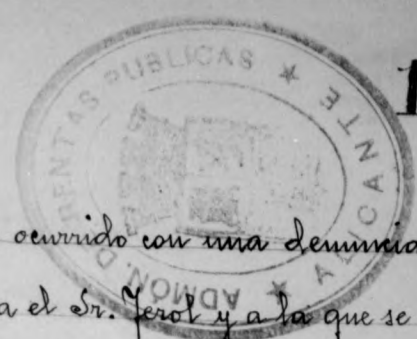 ADMÓN. DE RENTAS PUBLICAS ★ ALICANTE ★
1
ocurrido con una denuncia
a el Sr. Jerol y a la que se